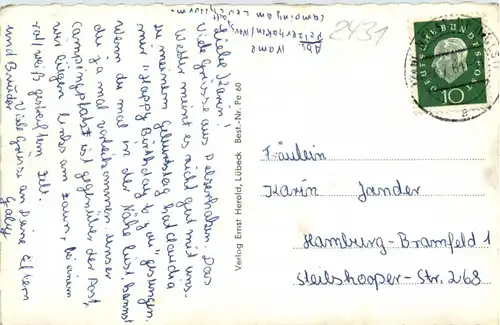 Abs. Name
Pelzerhaken/Neust.
Campingam Leuchtturm
Zelt
2431
Liebe Karin!
Viele Grüsse aus Pelzerhaken. Das
Wetter meint es nicht gut mit uns.
Zu meinem Geburtstag hat Claudia
mir "Happy Birthday to you" gesungen.
Wenn du mal in der Nähe bist kannst
du ja mal vorbeikommen. Unser
Campingplatz ist gegenüber der Post,
wir liegen links am Zaun, bei einem
rot/weiß gestreiften Zelt.
Viele Grüsse an Deine Eltern
und Brüder
Gaby
Verlag Ernst Herold, Lübeck Best.-Nr. Pe 60
DEUTSCHE BUNDESPOST
10
Fräulein
Karin Jander
Hamburg-Bramfeld 1
Steilshooper-Str. 268